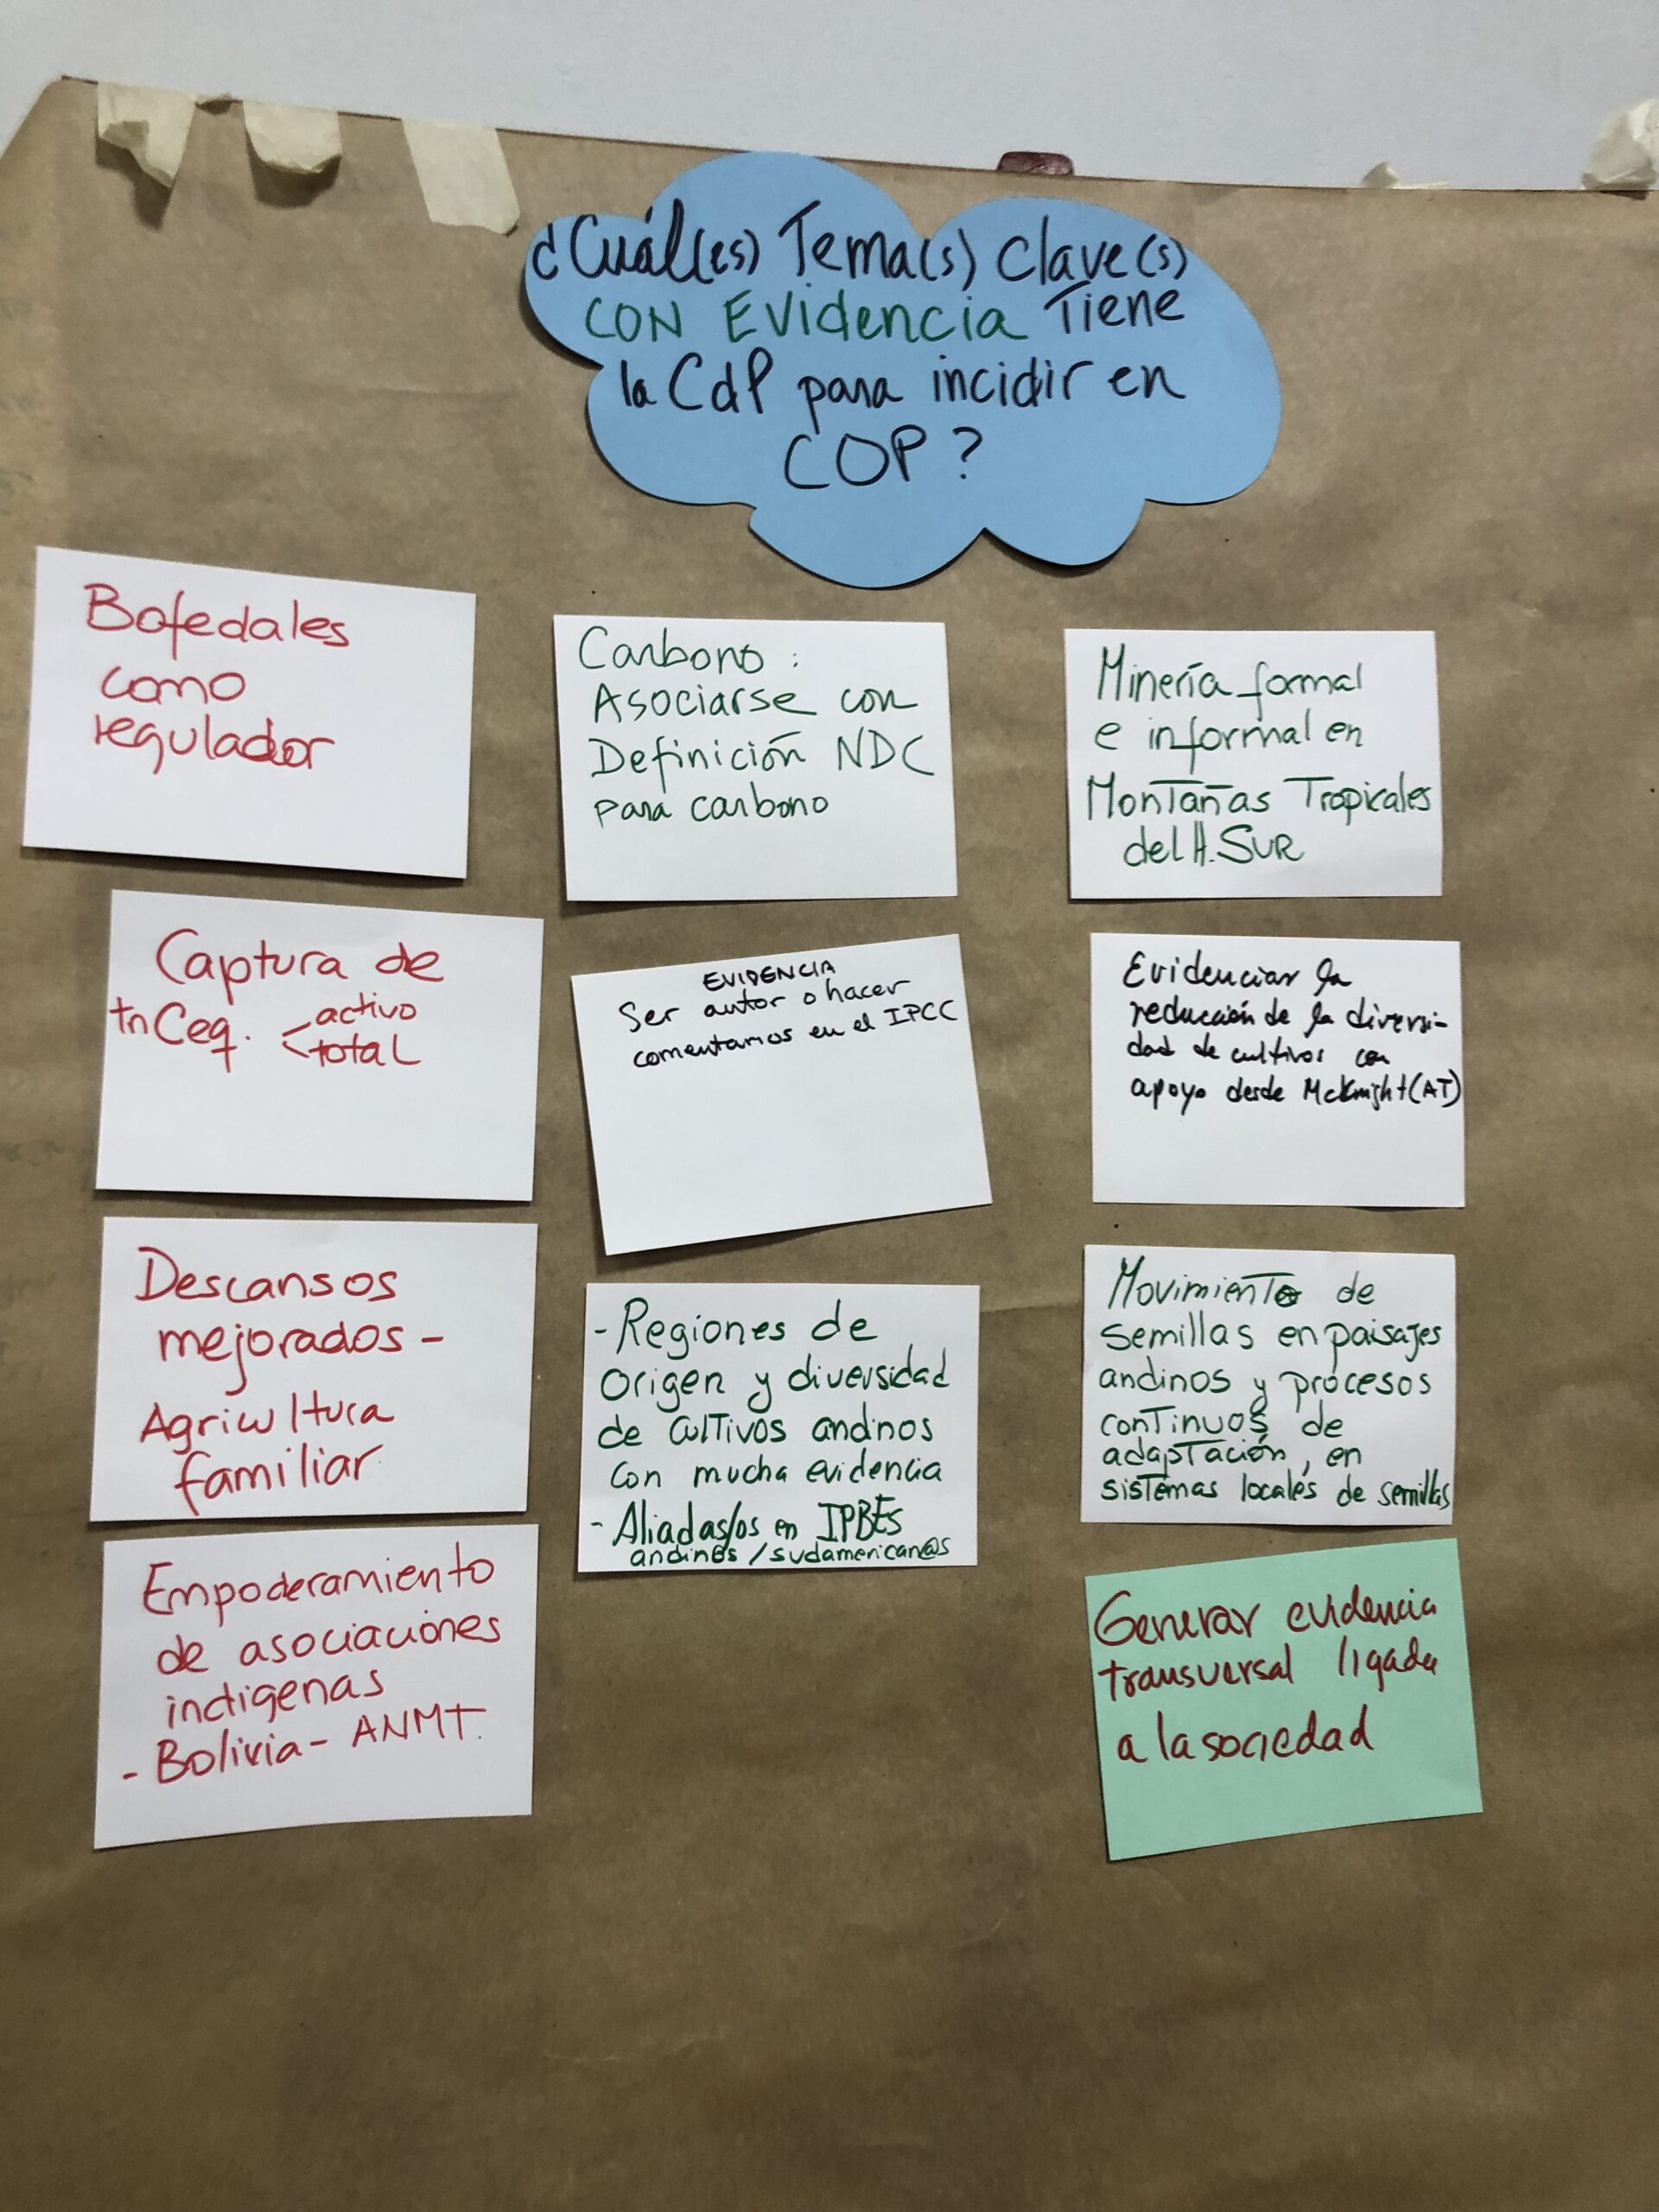 ¿Cuál(es) Tema(s) clave(s)
CON EVidencia Tiene
la CdP para incidir en
COP?
Bofedales
como
regulador
Captura de
tnCeq. activo
total
Descansos
mejorados -
Agricultura
familiar
Empoderamiento
de asociaciones
indigenas
- Bolivia - ANMT.
Carbono :
Asociarse con
Definición NDC
para carbono
EVIDENCIA
Ser autor o hacer
comentarios en el IPCC
- Regiones de
Origen y diversidad
de cultivos andinos
con mucha evidencia
- Aliadas/os en IPBES
andin@s / sudamerican@s
Minería formal
e informal en
Montañas Tropicales
del H. SUR
Evidenciar la
reducción de la diversi-
dad de cultivos con
apoyo desde McKnight (AT)
Movimiento de
semillas en paisajes
andinos y procesos
continuos de
adaptación, en
sistemas locales de semillas
Generar evidencia
transversal ligada
a la sociedad